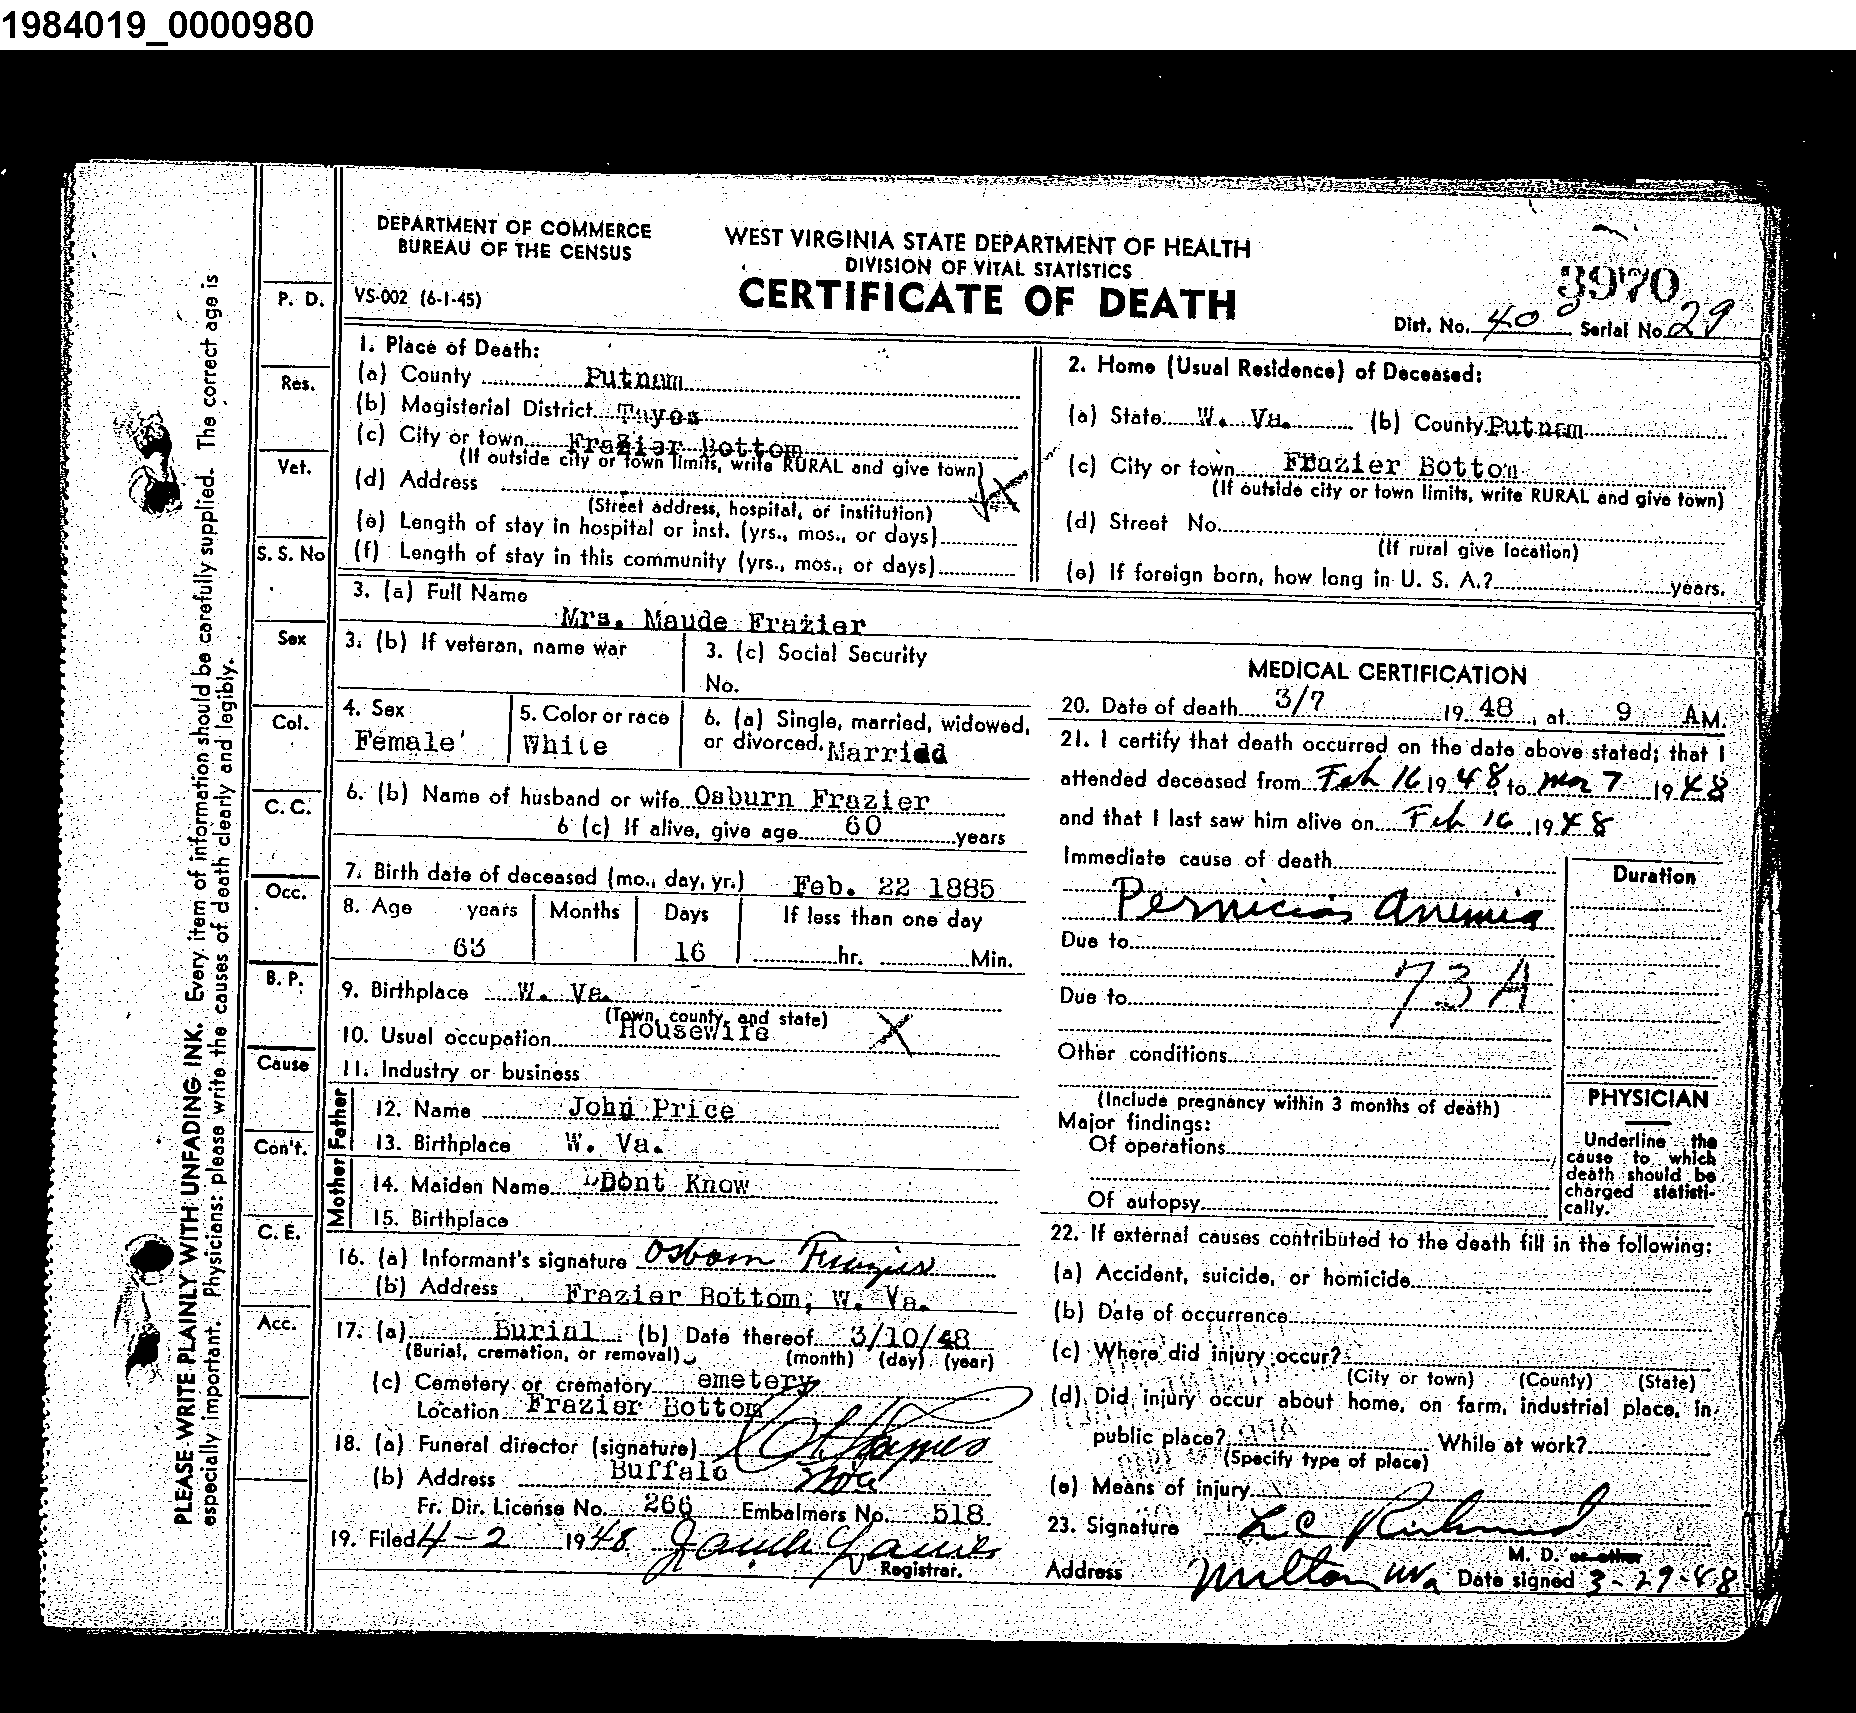 1984019_0000980
DEPARTMENT OF COMMERCE
BUREAU OF THE CENSUS
VS-002 (6-1-45)
WEST VIRGINIA STATE DEPARTMENT OF HEALTH
DIVISION OF VITAL STATISTICS
CERTIFICATE OF DEATH
3970
Dist. No. 40 Serial No. 29
PLEASE WRITE PLAINLY WITH UNFADING INK. Every item of information should be carefully supplied. The correct age is
especially important. Physicians: please write the causes of death clearly and legibly.
P. D.
Res.
Vet.
S. S. No
Sex
Col.
C. C.
Occ.
B. P.
Cause
Con't.
C. E.
Acc.
1. Place of Death:
(a) County Putnam
(b) Magisterial District Tayes
(c) City or town Frazier Bottom
(If outside city or town limits, write RURAL and give town)
(d) Address
(Street address, hospital, or institution)
(e) Length of stay in hospital or inst. (yrs., mos., or days)
(f) Length of stay in this community (yrs., mos., or days)
2. Home (Usual Residence) of Deceased:
(a) State W. Va. (b) County Putnam
(c) City or town Frazier Bottom
(If outside city or town limits, write RURAL and give town)
(d) Street No.
(If rural give location)
(e) If foreign born, how long in U. S. A.? years.
3. (a) Full Name
Mrs. Maude Frazier
3. (b) If veteran, name war
3. (c) Social Security
No.
4. Sex
Female
5. Color or race
White
6. (a) Single, married, widowed,
or divorced. Marridd
6. (b) Name of husband or wife Osburn Frazier
6 (c) If alive, give age 60 years
7. Birth date of deceased (mo., day, yr.) Feb. 22 1885
8. Age years Months Days If less than one day
63 16 hr. Min.
9. Birthplace W. Va.
(Town, county, and state)
10. Usual occupation Housewife X
11. Industry or business
Father
12. Name John Price
13. Birthplace W. Va.
Mother
14. Maiden Name Dont Know
15. Birthplace
16. (a) Informant's signature Osborn Frazier
(b) Address Frazier Bottom, W. Va.
17. (a) Burial (b) Date thereof 3/10/48
(Burial, cremation, or removal) (month) (day) (year)
(c) Cemetery or crematory emetery
Location Frazier Bottom
18. (a) Funeral director (signature)
(b) Address Buffalo
Fr. Dir. License No. 266 Embalmers No. 518
19. Filed 4-2 1948
Registrar.
MEDICAL CERTIFICATION
20. Date of death 3/7 19 48, at 9 AM.
21. I certify that death occurred on the date above stated; that I
attended deceased from Feb 16 1948, to Mar 7 1948
and that I last saw him alive on Feb 16 1948
Immediate cause of death
Duration
Pernicios Anemia
Due to
73A
Due to
Other conditions
(Include pregnancy within 3 months of death)
Major findings:
Of operations
Of autopsy
PHYSICIAN
Underline the
cause to which
death should be
charged statisti-
cally.
22. If external causes contributed to the death fill in the following:
(a) Accident, suicide, or homicide
(b) Date of occurrence
(c) Where did injury occur?
(City or town) (County) (State)
(d) Did injury occur about home, on farm, industrial place, in
public place? While at work?
(Specify type of place)
(e) Means of injury
23. Signature L C Richmond
M. D. or other
Address Milton WVa Date signed 3-29-48